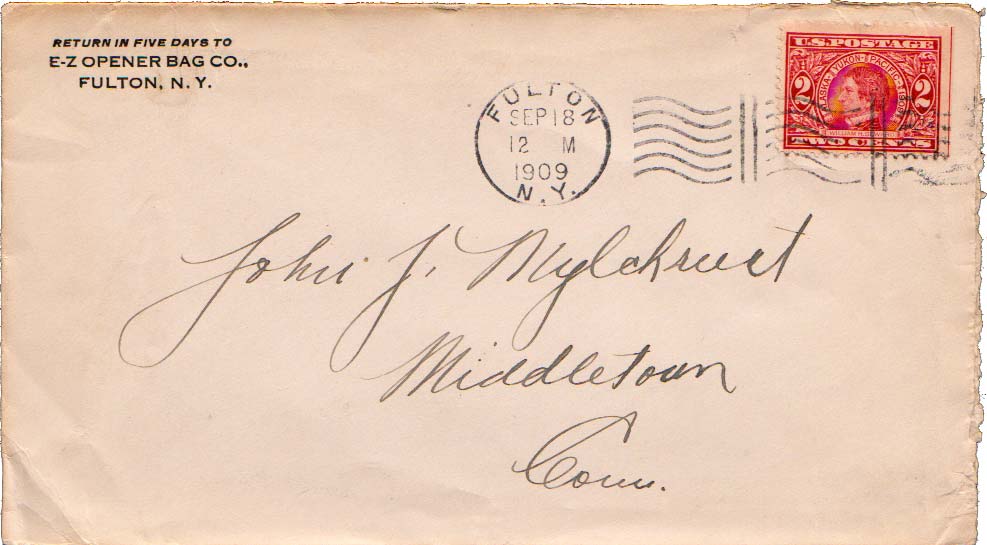 RETURN IN FIVE DAYS TO
E-Z OPENER BAG CO.,
FULTON, N. Y.
FULTON
SEP 18
12 M
1909
N.Y.
U.S. POSTAGE
ALASKA-YUKON-PACIFIC-1909
2 2
WILLIAM H. SEWARD
TWO CENTS
John J. Mylchreest
Middletown
Conn.